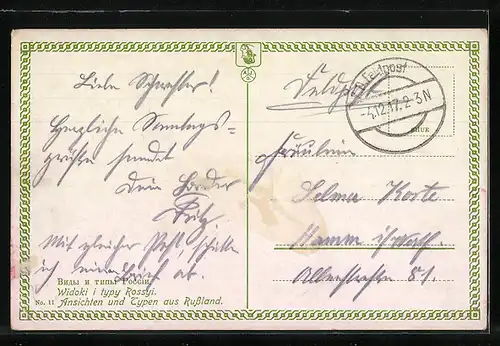 Liebe Schwester!
Herzliche Sonntags-
grüße sendet
Dein Bruder
Fritz
Mit gleicher Post, schicke
ich ab.
Виды и типы Россіи.
Widoki i typy Rossyi.
No. 11 Ansichten und Typen aus Rußland.
Feldpost
Feldpost
-4.12.17. 2-3N
Fräulein
Selma Korte
Hamm i/Westf.
Albertstraße 81.